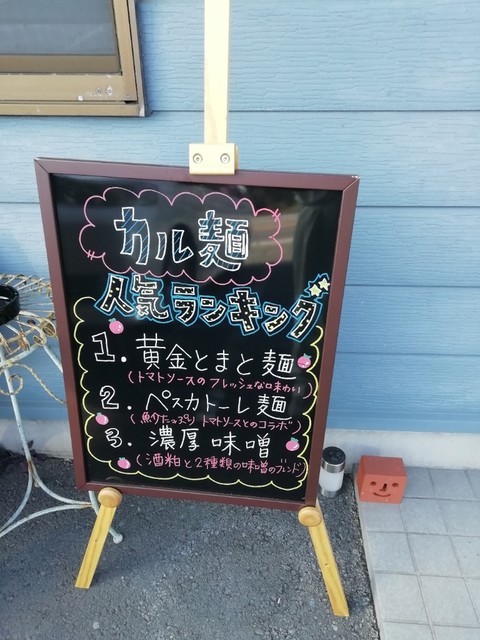 カル麺
人気ランキング
1. 黄金とまと麺
(トマトソースのフレッシュな味わい)
2. ペスカトーレ麺
(魚介たっぷり トマトソースとのコラボ)
3. 濃厚味噌
(酒粕と2種類の味噌のブレンド)